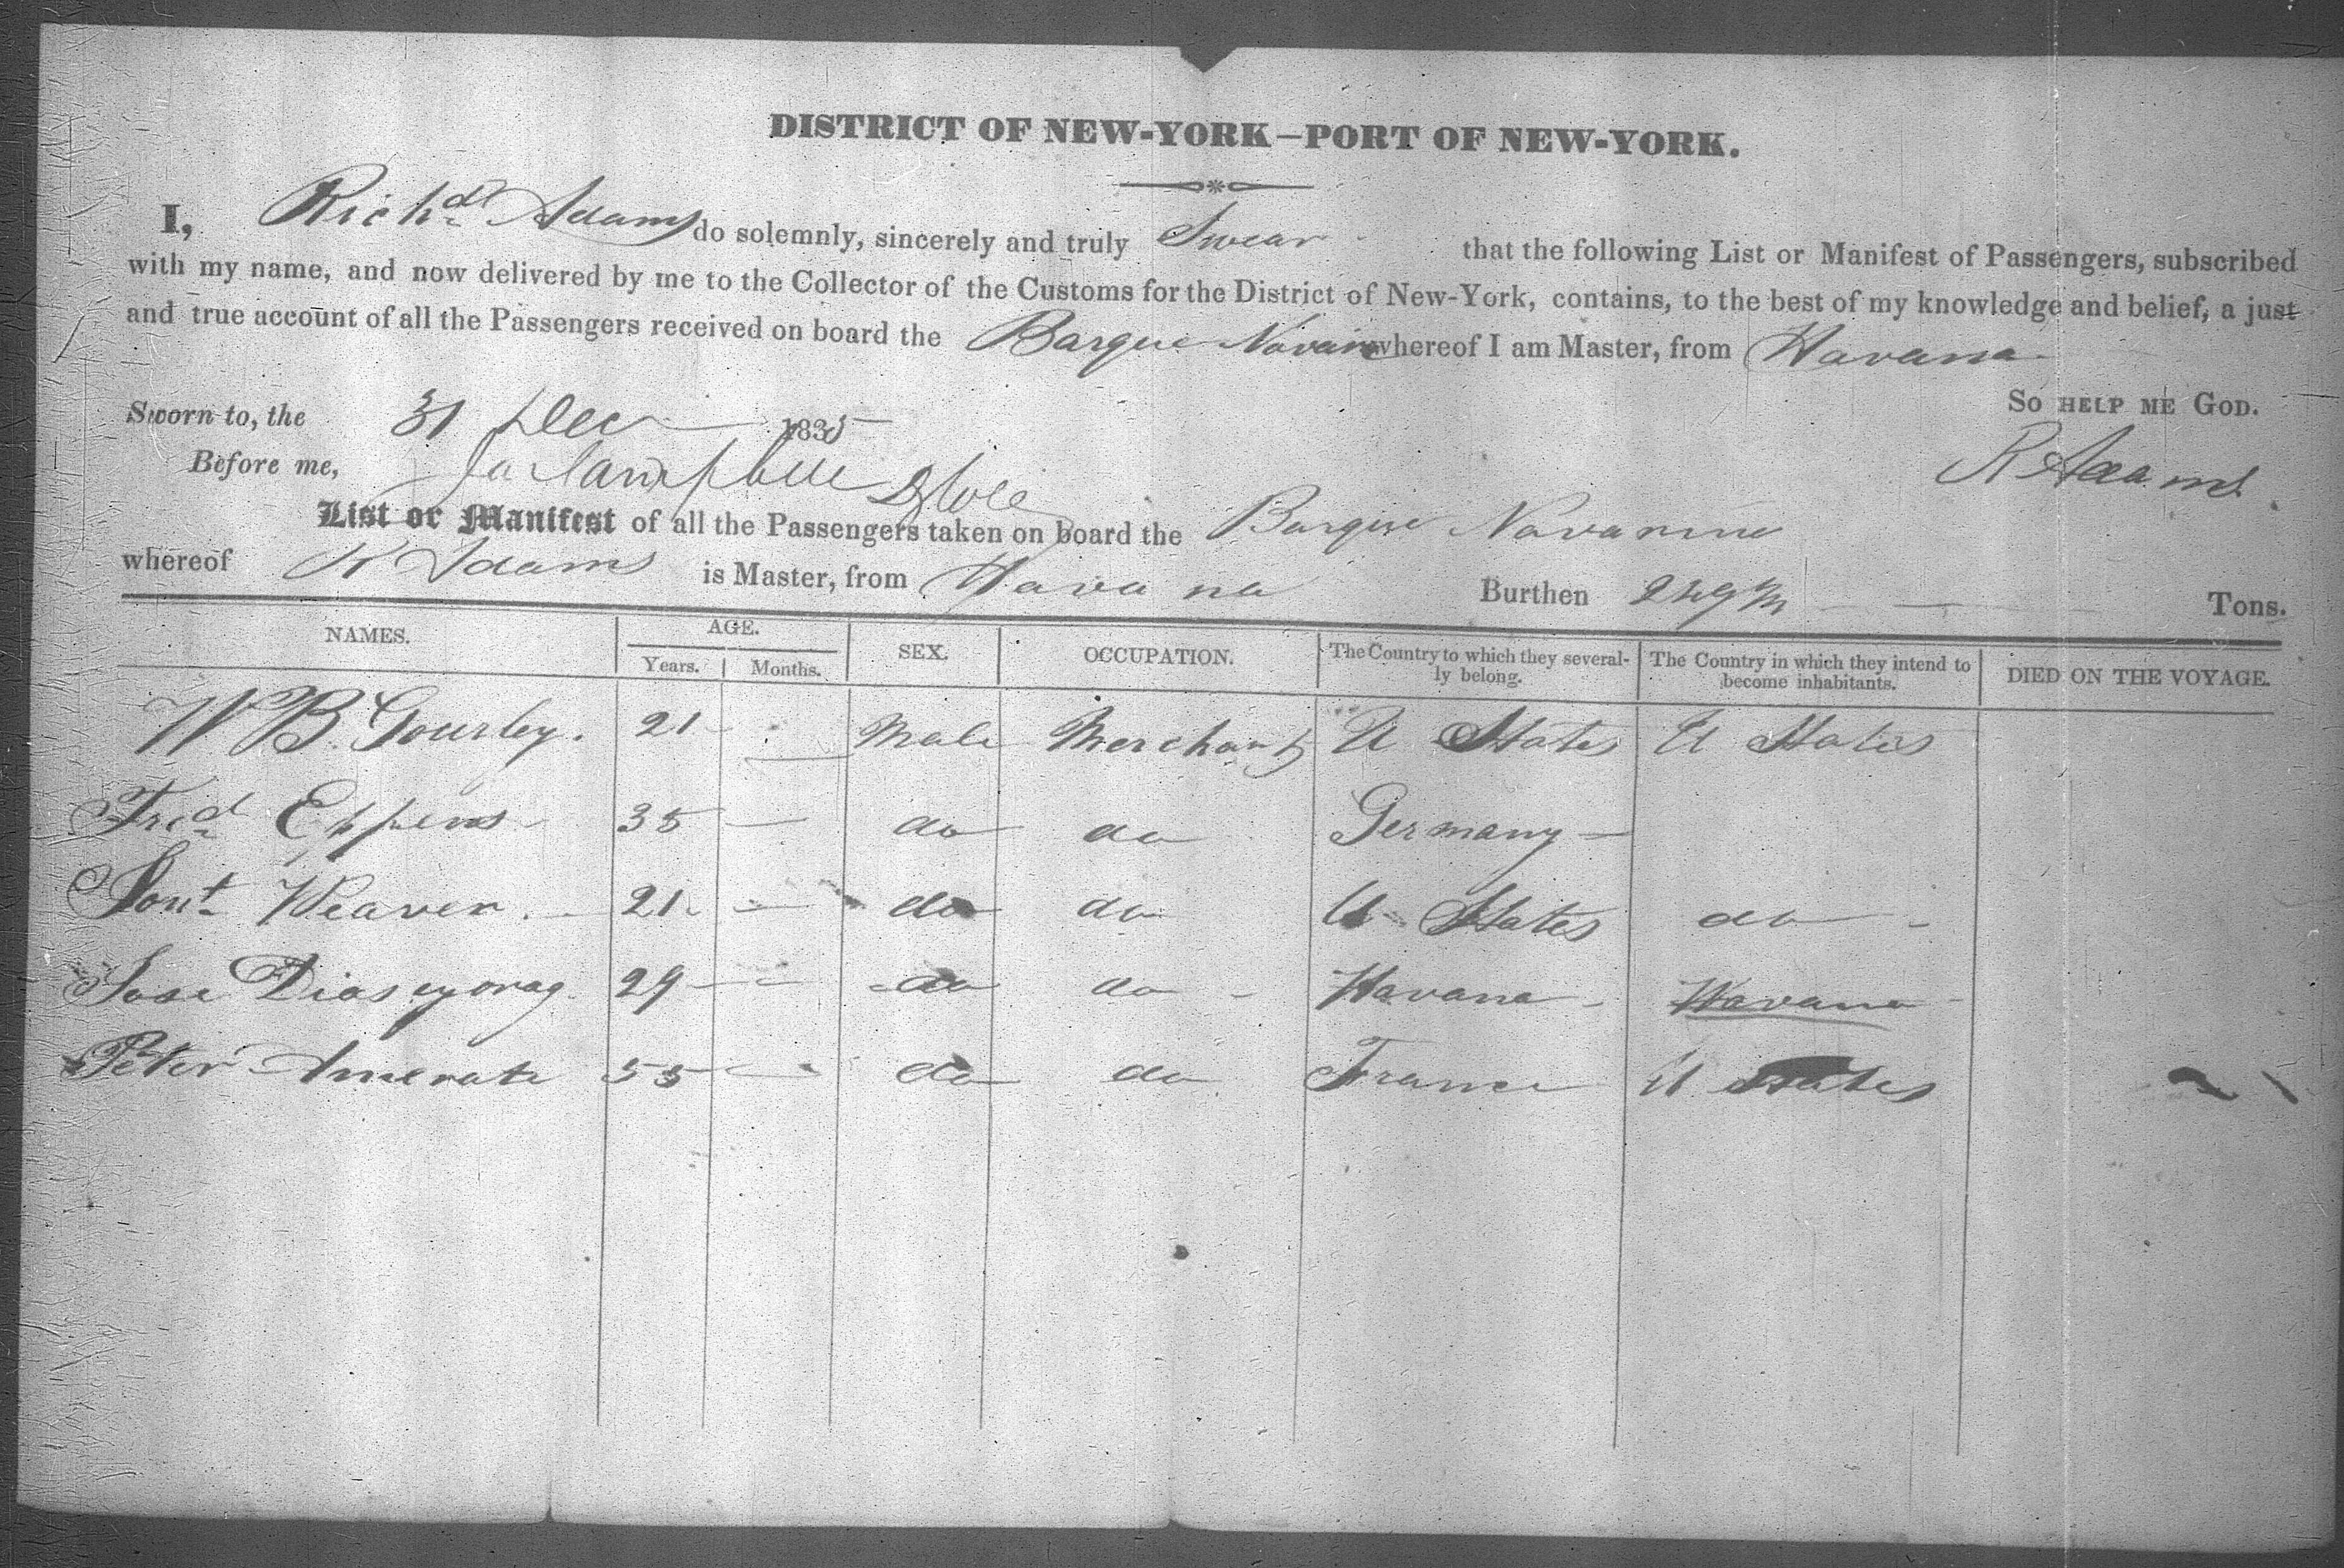 DISTRICT OF NEW-YORK—PORT OF NEW-YORK.
I, Richd Adams do solemnly, sincerely and truly Swear that the following List or Manifest of Passengers, subscribed
with my name, and now delivered by me to the Collector of the Customs for the District of New-York, contains, to the best of my knowledge and belief, a just
and true account of all the Passengers received on board the Barque Navarino whereof I am Master, from Havana
So HELP ME GOD.
Sworn to, the 31 Dec 1835
R Adams
Before me, Ja Campbell
List or Manifest of all the Passengers taken on board the Barque Navarino
whereof R Adams is Master, from Havana Burthen Tons.
NAMES. AGE. SEX. OCCUPATION. The Country to which they severally belong. The Country in which they intend to become inhabitants. DIED ON THE VOYAGE.
Years. Months.
W B Gourley. 21 Male Merchant U States U States
Fred Eppens 35 — do do Germany —
Weaver. 21 — do do U States do —
Jose 29 — do do Havana Havana
Peter 55 — do do France U States